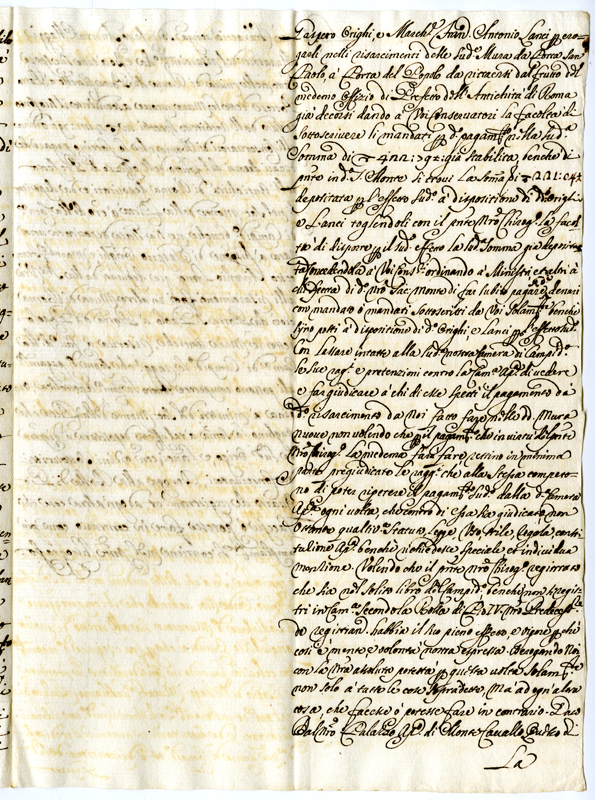 Gaspero Orighi, e March.e Fran.co Antonio Lanci p ero=
garli nelli risarcimenti delle sud.e Mura da Porta San
Paolo, à Porta del Popolo da ritraersi dal frutto del
medemo Offizio di Prefetto dell'Antichità di Roma
già decorsi dando à Voi Conservatori la facoltà di
sottoscrivere li mandati p d.o pagam.to nella sud.a
somma di 422: 92: già stabilita, benche di
pnte in d.o S. Monte si trovi la soma di 221: 04
depositata p l'effetto sud.o a dispositione di d.i Orighi,
e Lanci togliendoli con il pnte Nro Chirog.o la facol
tà di disporre p il sud.o effetto la sud.a somma già deposita
ta, concedendola à Voi Cons.ri ordinando à Ministri et altri à
chi spetta di d.o Nro Sac. Monte di far subito pagare denari
con mandato ò mandati sottoscritti da Voi solam.te benche
siino posti à dispositione di d.i Orighi, e Lanci p l'effetto sud.o
Con lassare intatte alla sud.a nostra Camera di Campid.o
le sue rag.i e pretenzioni contro la Cam.a Ap.ca di vedere
e far giudicare à chi di esse spetti il pagamento da
d.o risarcimento da Noi fatto fare nelle dd. Mura
nuove non volendo che p il pagam.to che in virtù del pnte
Nro Chirog.o la medema farà fare restino in minima
parte pregiudicate le ragg.i che alla stessa competo=
no di poter ripetere il pagam.to sud.o dalla d.a Camera
Ap.ca ogni volta che contro di essa sia giudicato, non
ostante qualsiv.a Statuto, Legge, Uso, stile, regola, consti
tutione Ap.ca benche richiedesse speciale et individua
mentione. Volendo che il pnte Nro Chirog.o registrato
che sia nel solito libro del Campid.o benche non si regis
tri in Cam.a secondo la Bolla di Pio IV. Nro Predecess.re
da registrarsi habbia il suo pieno effetto, e vigore p che
così è mente e volontà nostra espressa. Derogando Noi
con la Nra assoluta potestà p questa volta solam.te
non solo à tutte le cose sopradette, Mà ad ogn'altra
cosa che facesse ò potesse fare in contrario. Dato
Dal Nro Palazzo Ap.co di Monte Cavallo questo dì
La